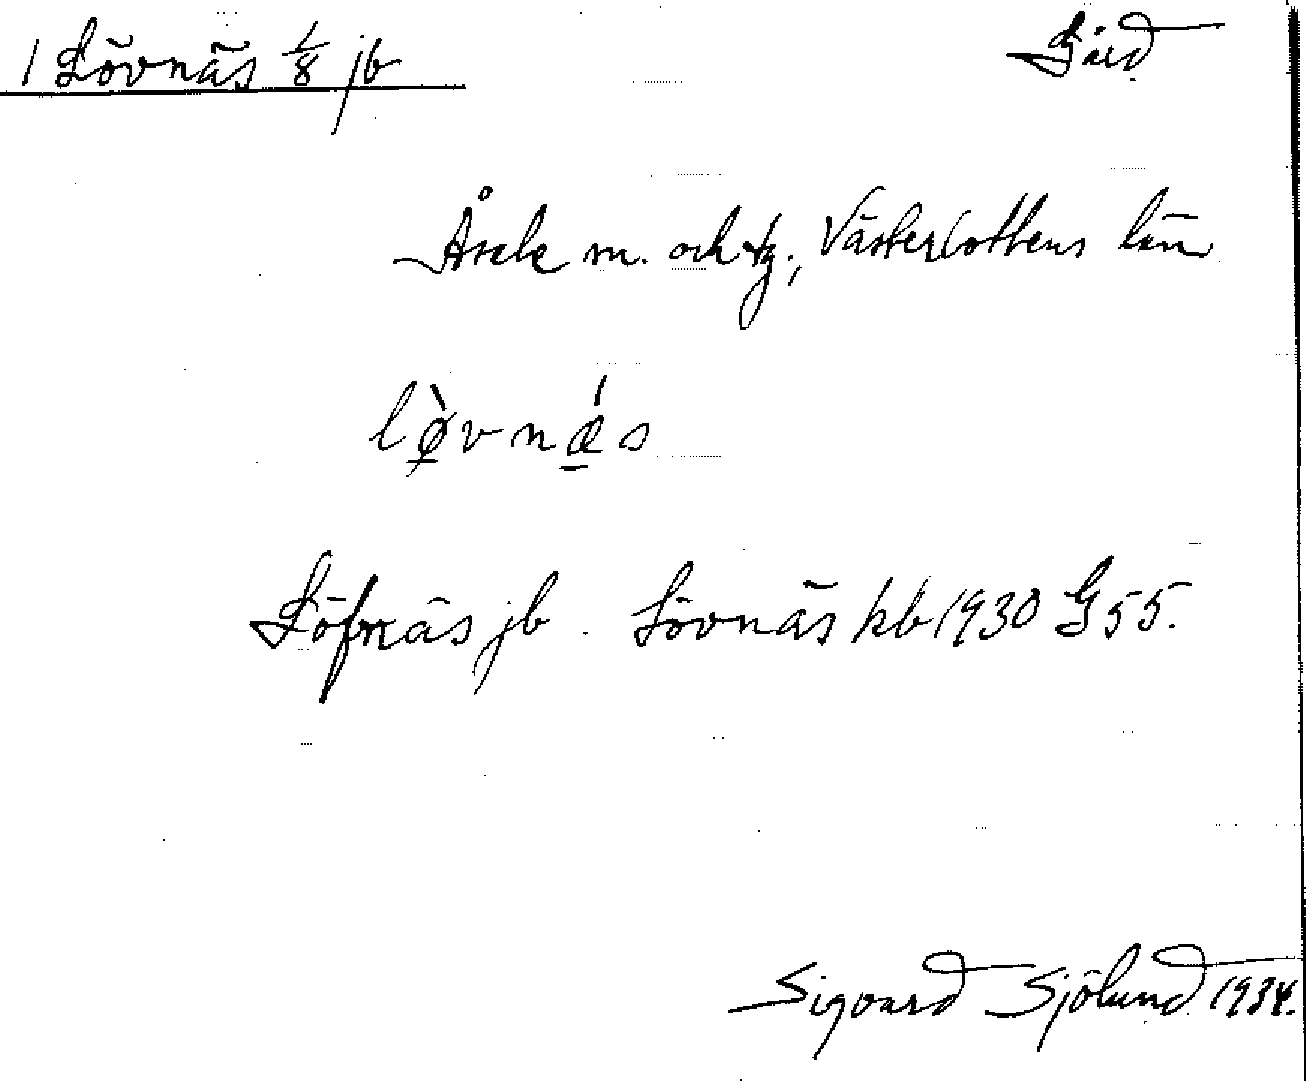 1 Lövnäs 1/8 jb
Gård
Åsele m. och tg., Västerbottens län
lø̱̀vnǽ̱s
Löfnäs jb. Lövnäs kb 1930 G 55.
Sigvard Sjölund 1934.